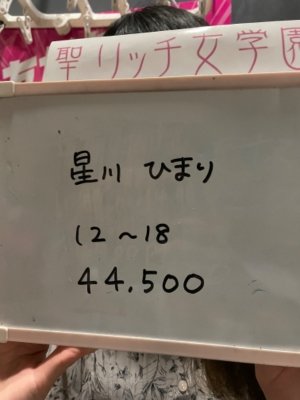 聖リッチ女学園
星川 ひまり
12～18
44.500